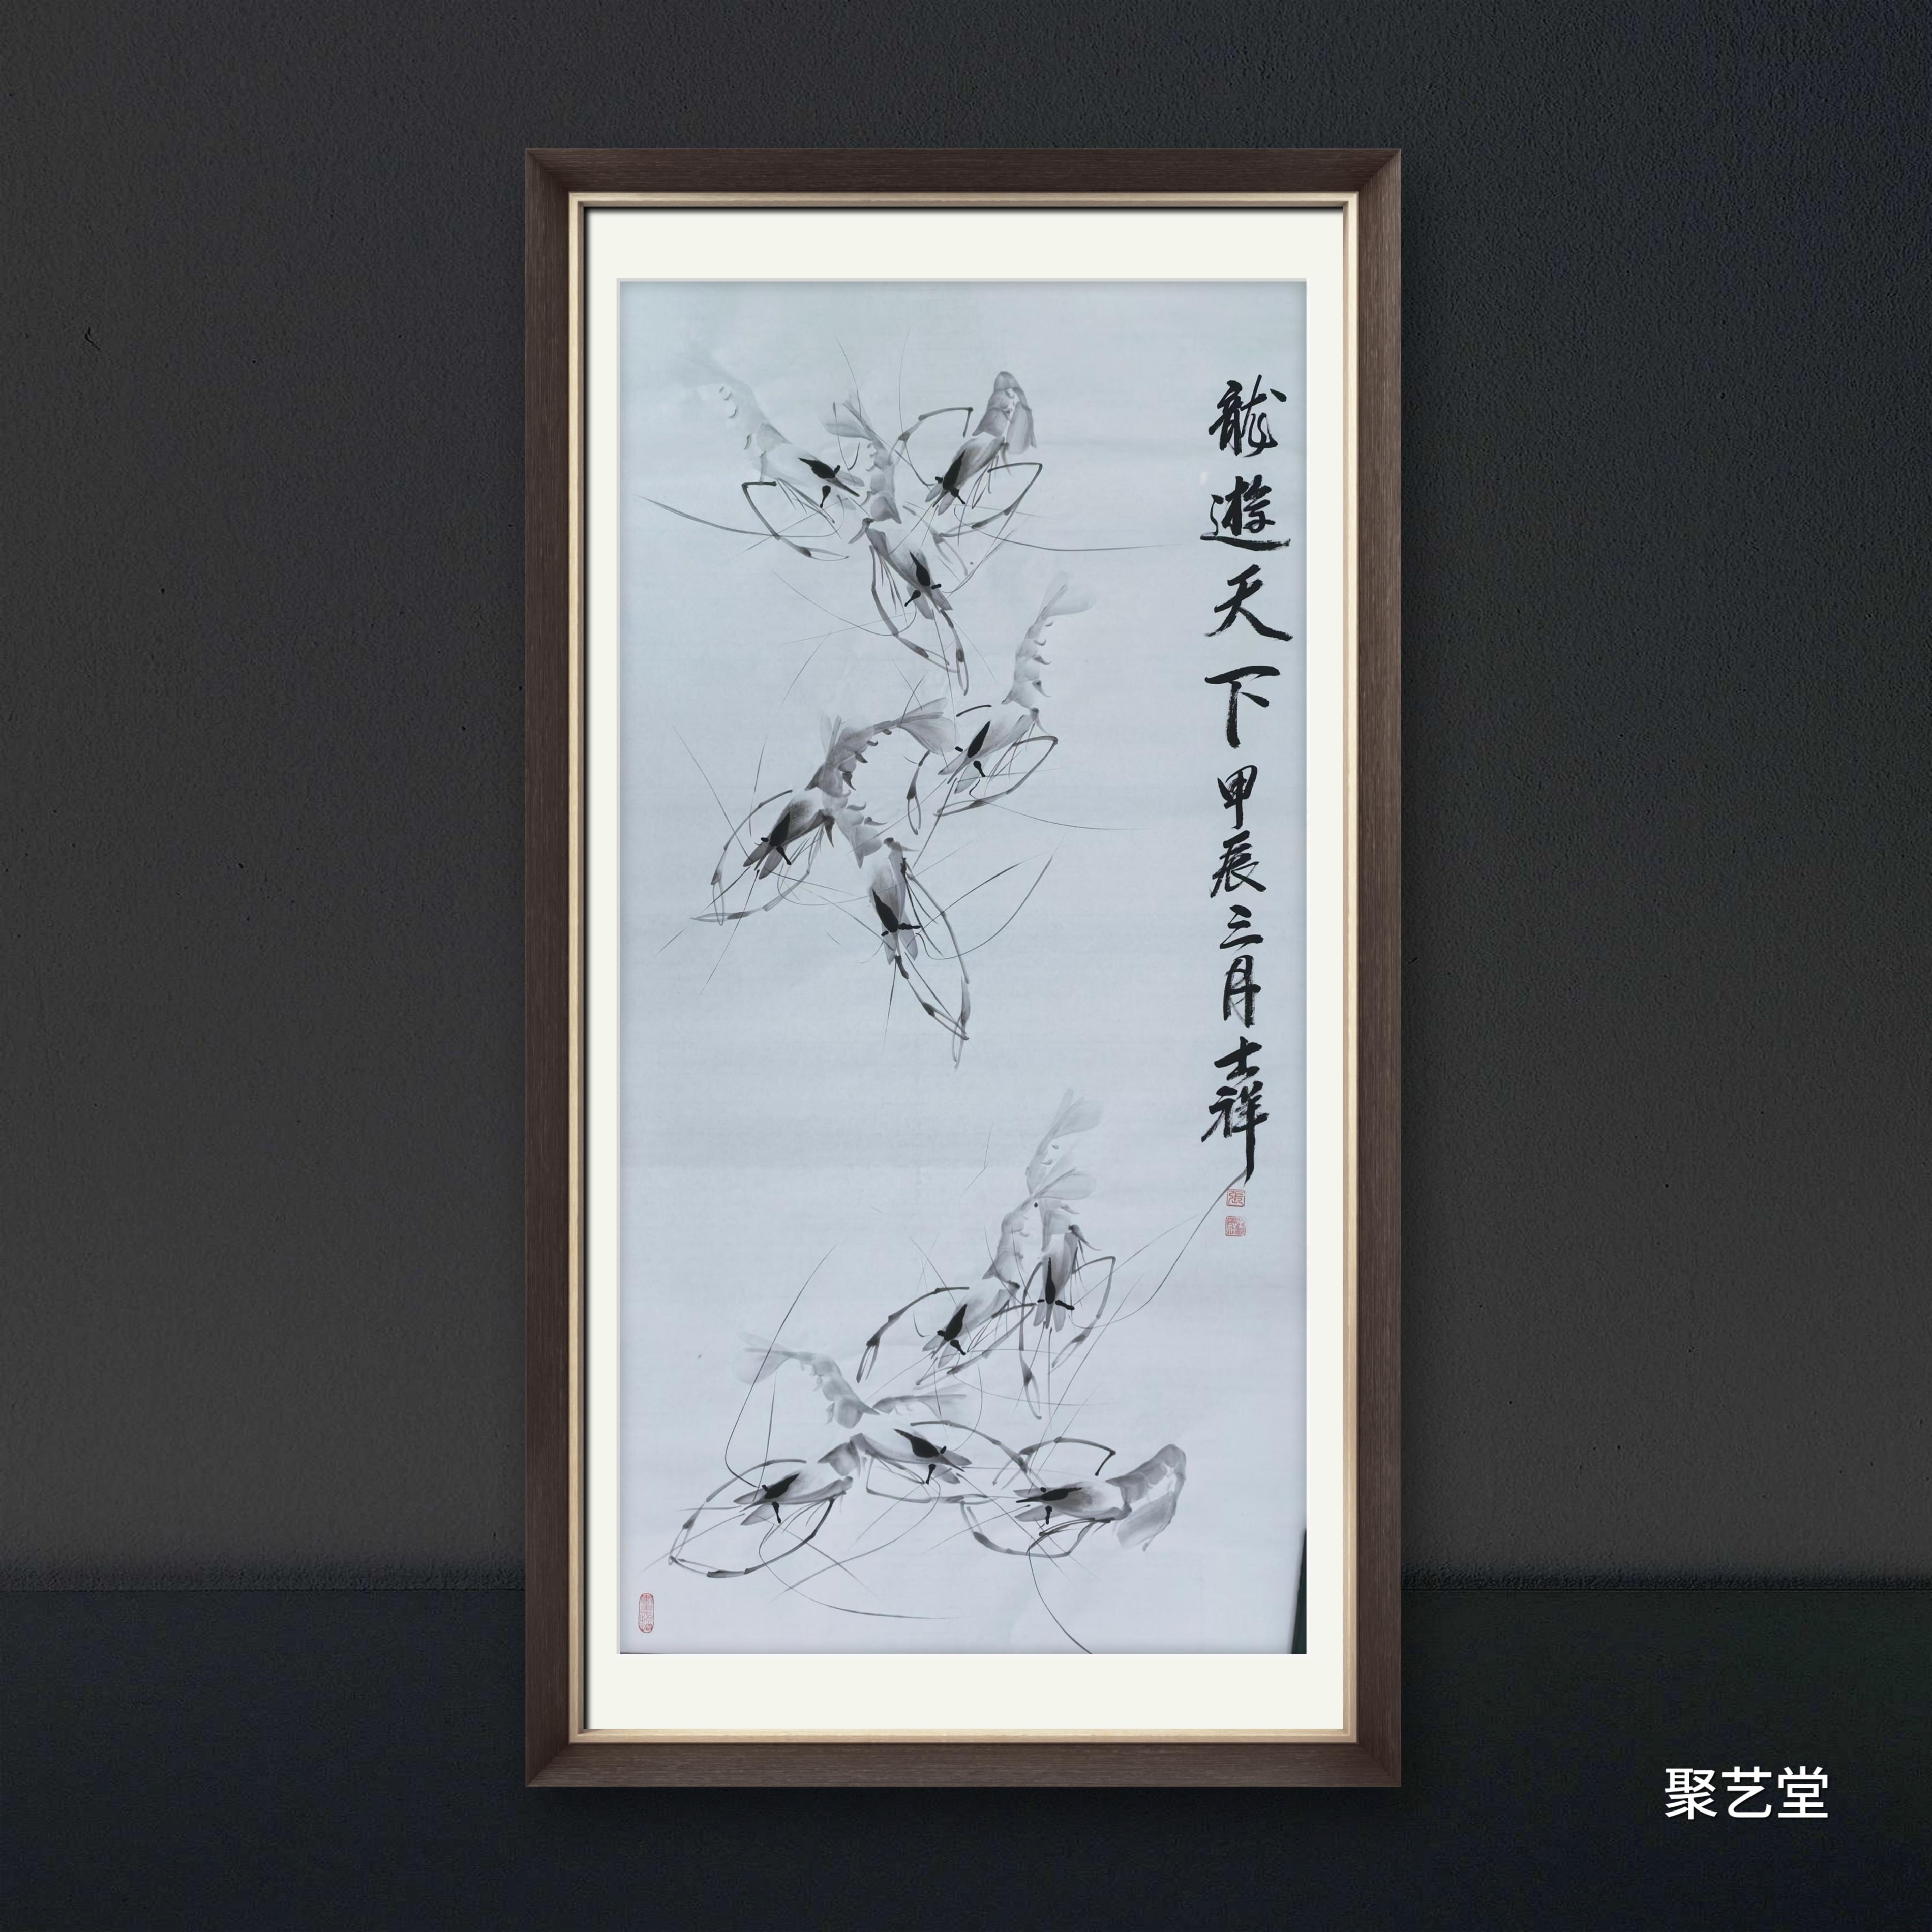 龍遊天下甲辰三月士祥
張
聚艺堂